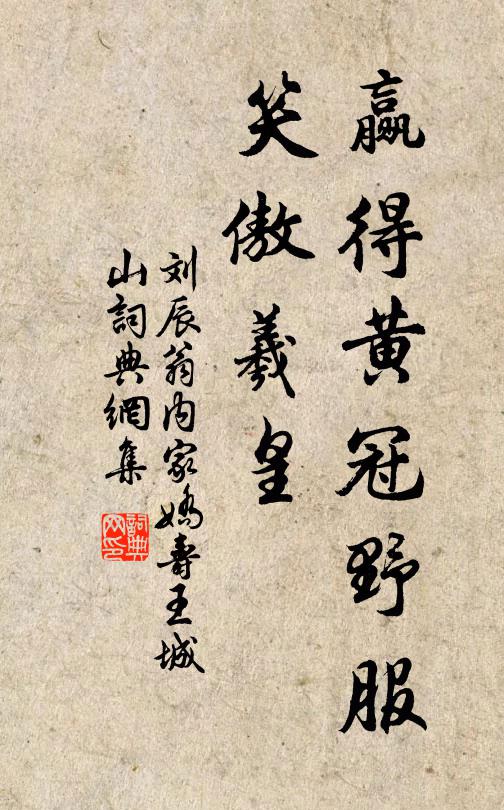 赢得黄冠野服
笑傲羲皇
刘辰翁内家娇寿王城
山詞典網集
詞典
网印